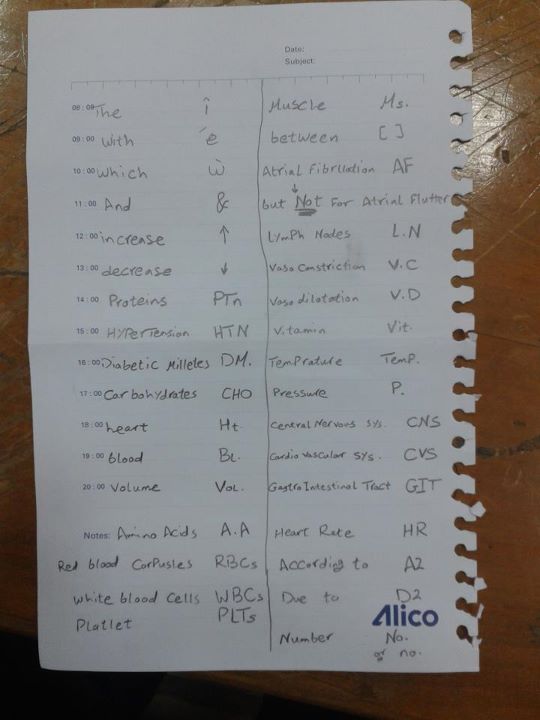 Date:
Subject:
08:00 The î
09:00 with é
10:00 which ù
11:00 And &
12:00 increase ↑
13:00 decrease ↓
14:00 Proteins PTn
15:00 HYPerTension HTN
16:00 Diabetic Milletes DM.
17:00 Carbohydrates CHO
18:00 heart Ht.
19:00 blood BL.
20:00 Volume VOL.
Notes: Amino Acids A.A
Red blood CorPusles RBCs
White blood Cells WBCs
Platlet PLTs
Muscle Ms.
between [ ]
Atrial Fibrllation AF
↓
but Not for Atrial Flutter
LyMPh Nodes L.N
Vaso Constriction V.C
Vaso dilotation V.D
Vitamin Vit.
TemPrature TemP.
Pressure P.
Central Nervous sys. CNS
Cardio vascular sys. CVS
Gastro Intestinal Tract GIT
Heart Rate HR
According to A2
Due to D2
Alico
Number No.
or no.